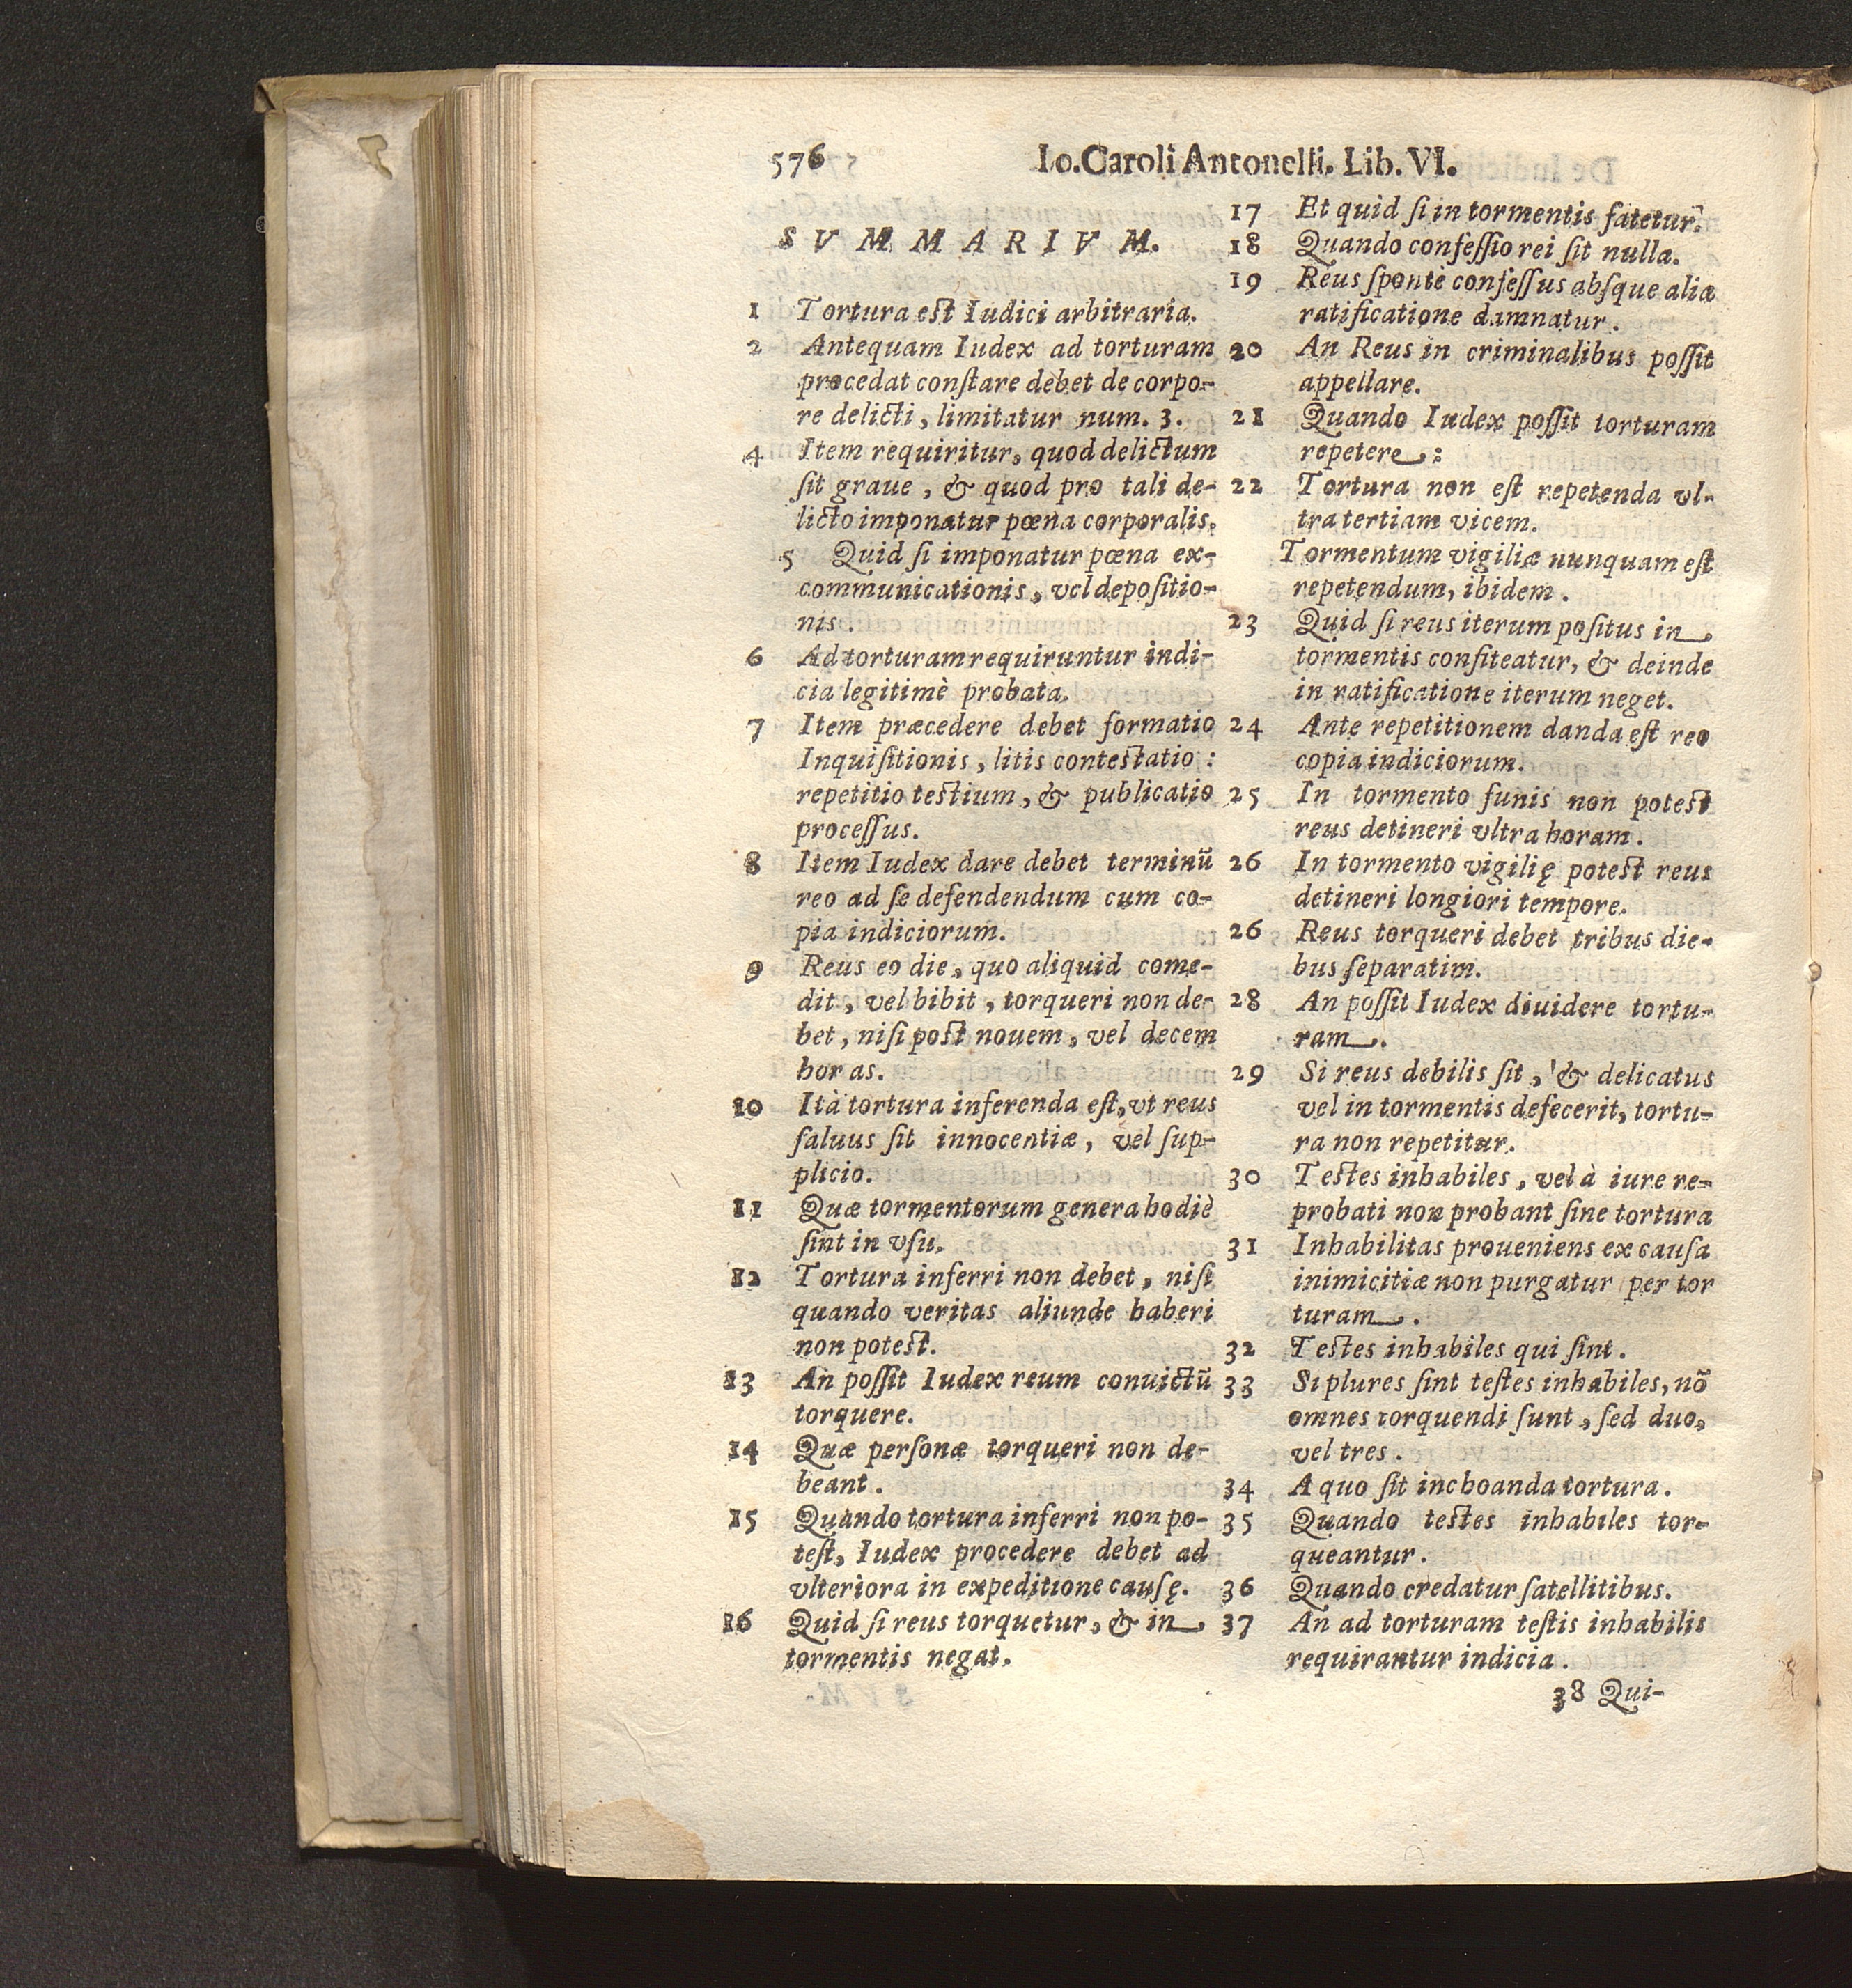 576 Io. Caroli Antonelli. Lib. VI.
SVMMARIVM.
1 Tortura est Iudici arbitraria.
2 Antequam Iudex ad torturam
procedat conſtare debet de corpo-
re delicti, limitatur num. 3.
4 Item requiritur, quod delictum
ſit graue, & quod pro tali de-
licto imponatur pœna corporalis.
5 Quid ſi imponatur pœna ex-
communicationis, vel depoſitio-
nis.
6 Ad torturam requiruntur indi-
cia legitimè probata.
7 Item præcedere debet formatio
Inquiſitionis, litis contestatio:
repetitio testium, & publicatio
proceſſus.
8 Item Iudex dare debet terminũ
reo ad ſe defendendum cum co-
pia indiciorum.
9 Reus eo die, quo aliquid come-
dit, vel bibit, torqueri non de-
bet, niſi post nouem, vel decem
horas.
10 Ità tortura inferenda eſt, vt reus
ſaluus ſit innocentiæ, vel ſup-
plicio.
11 Quæ tormentorum genera hodiè
ſint in vſu.
12 Tortura inferri non debet, niſi
quando veritas aliunde haberi
non potest.
13 An poſſit Iudex reum conuictũ
torquere.
14 Quæ perſonæ torqueri non de-
beant.
15 Quando tortura inferri non po-
teſt, Iudex procedere debet ad
vlteriora in expeditione cauſę.
16 Quid ſi reus torquetur, & in
tormentis negat.
17 Et quid ſi in tormentis fatetur.
18 Quando confeſſio rei ſit nulla.
19 Reus ſpontè confeſſus abſque alia
ratificatione damnatur.
20 An Reus in criminalibus poſſit
appellare.
21 Quando Iudex poſſit torturam
repetere:
22 Tortura non eſt repetenda vl-
tra tertiam vicem.
Tormentum vigiliæ nunquam eſt
repetendum, ibidem.
23 Quid ſi reus iterum poſitus in
tormentis confiteatur, & deinde
in ratificatione iterum neget.
24 Ante repetitionem danda eſt reo
copia indiciorum.
25 In tormento funis non potest
reus detineri vltra horam.
26 In tormento vigilię potest reus
detineri longiori tempore.
26 Reus torqueri debet tribus die-
bus ſeparatim.
28 An poſſit Iudex diuidere tortu-
ram.
29 Si reus debilis ſit, & delicatus
vel in tormentis defecerit, tortu-
ra non repetitur.
30 Testes inhabiles, vel à iure re-
probati non probant ſine tortura
31 Inhabilitas proueniens ex cauſa
inimicitiæ non purgatur per tor
turam.
32 Testes inhabiles qui ſint.
33 Si plures ſint teſtes inhabiles, nõ
omnes torquendi ſunt, ſed duo,
vel tres.
34 A quo ſit inchoanda tortura.
35 Quando testes inhabiles tor-
queantur.
36 Quando credatur ſatellitibus.
37 An ad torturam teſtis inhabilis
requirantur indicia.
38 Qui-